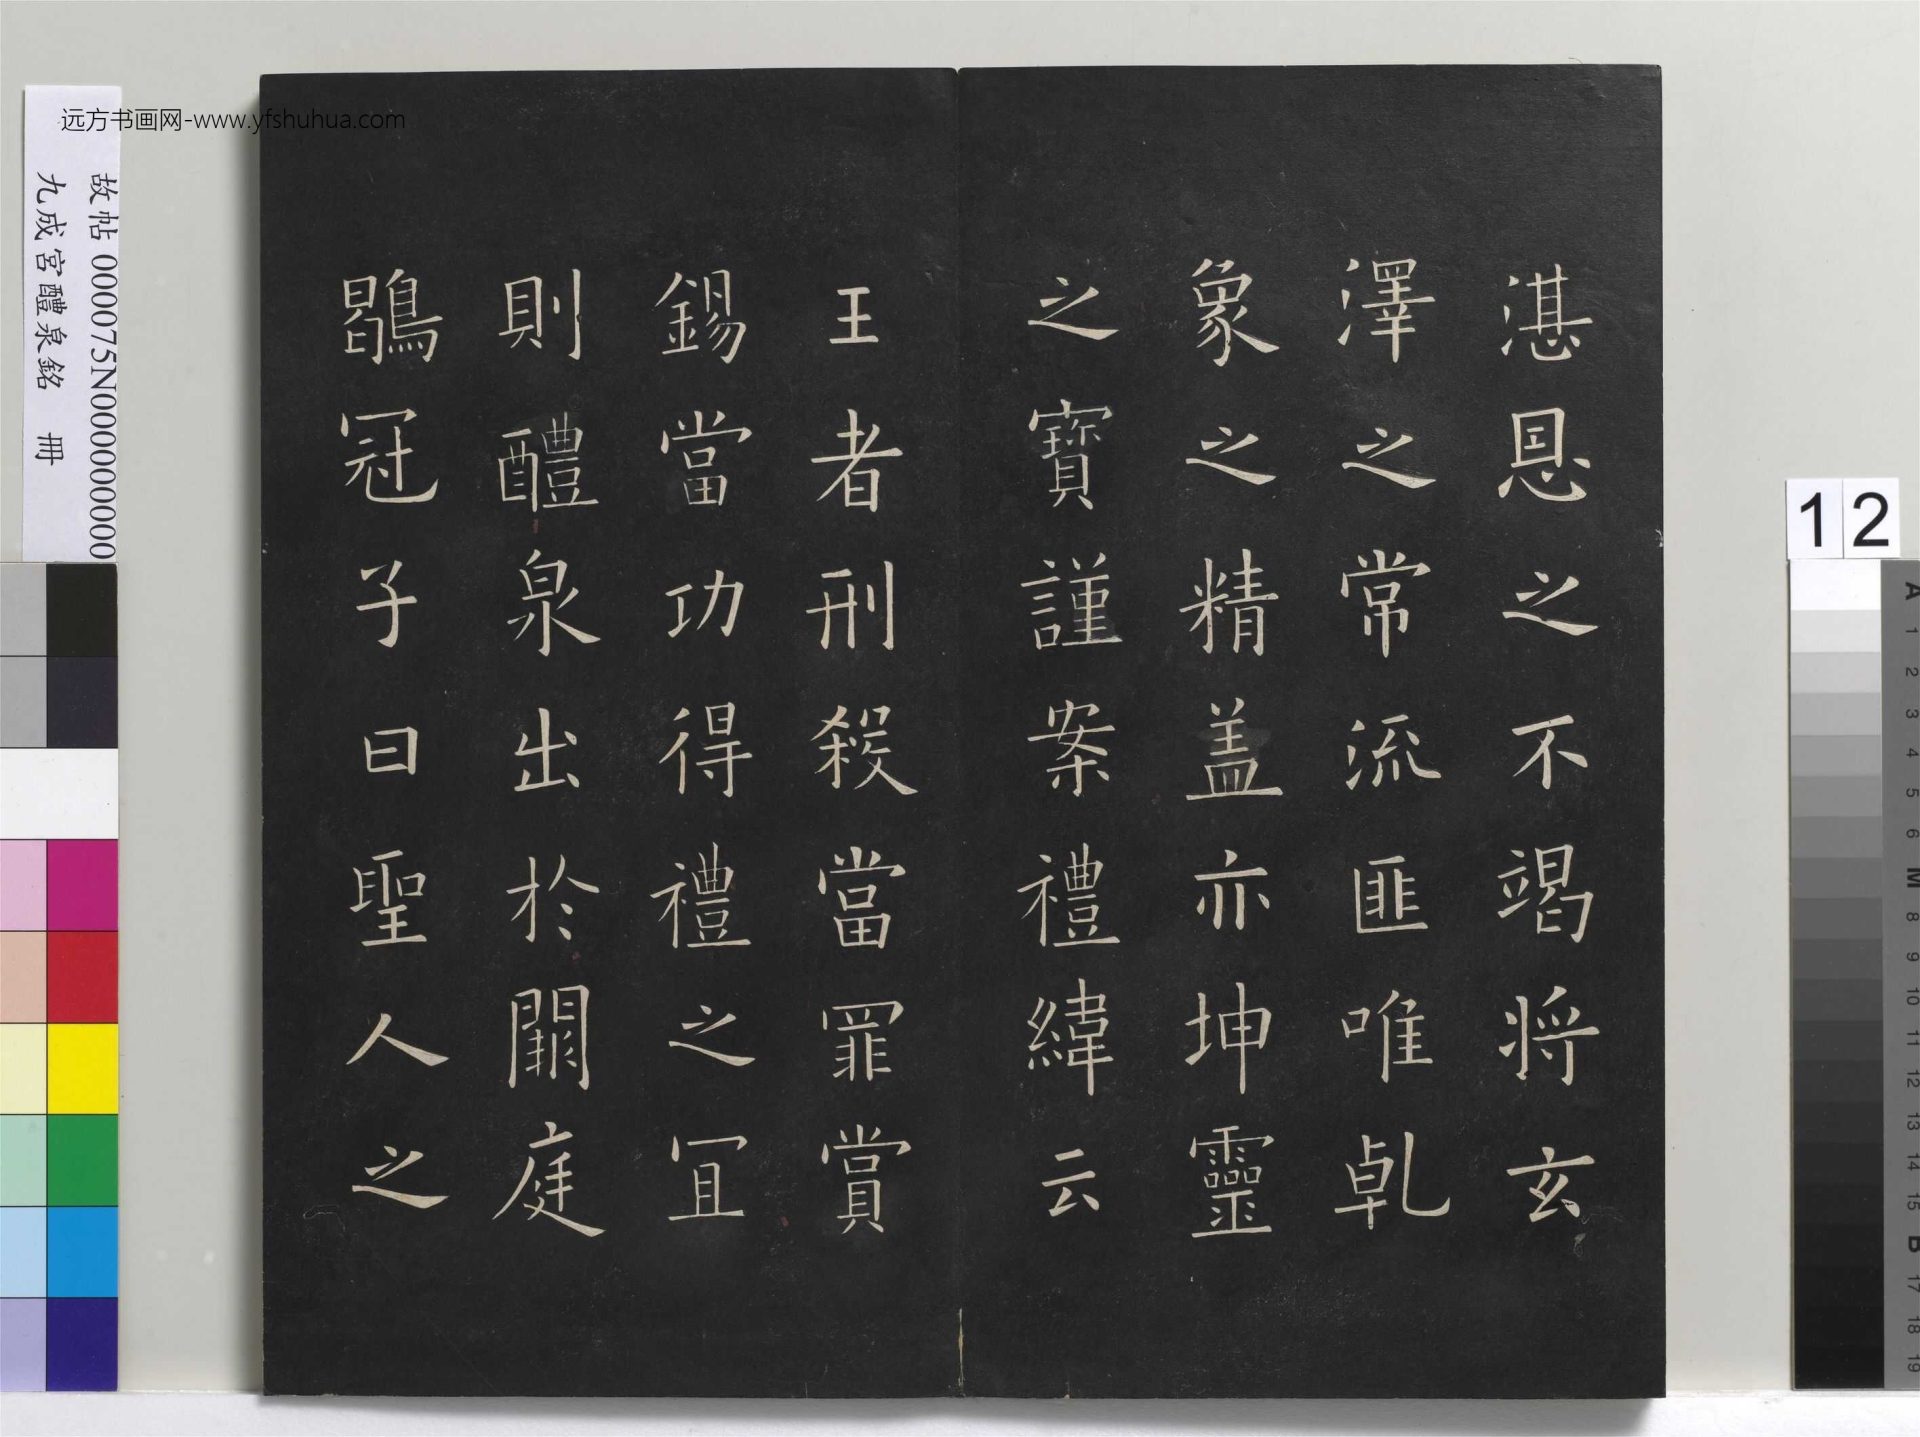 湛恩之不竭将玄
澤之常流匪唯乹
象之精盖亦坤靈
之寶謹案禮緯云
王者刑殺當罪賞
錫當功得禮之冝
則醴泉出於闕庭
鶡冠子曰聖人之
远方书画网-www.yfshuhua.com
故帖 000075N000000000
九成宮醴泉銘 冊
12
A
1
2
3
4
5
6
M
8
9
10
11
12
13
14
15
B
17
18
19